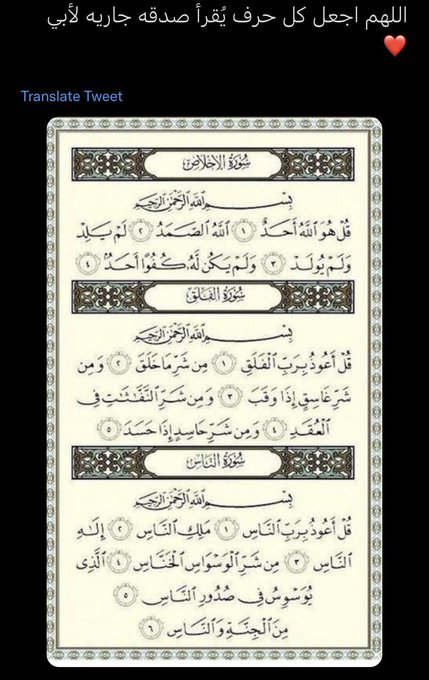 اللهم اجعل كل حرف يُقرأ صدقه جاريه لأبي
❤️
Translate Tweet
سُورَةُ الإِخْلَاصِ
بِسْمِ اللَّهِ الرَّحْمَٰنِ الرَّحِيمِ
قُلْ هُوَ اللَّهُ أَحَدٌ ١ اللَّهُ الصَّمَدُ ٢ لَمْ يَلِدْ
وَلَمْ يُولَدْ ٣ وَلَمْ يَكُن لَّهُ كُفُوًا أَحَدٌ ٤
سُورَةُ الفَلَقِ
بِسْمِ اللَّهِ الرَّحْمَٰنِ الرَّحِيمِ
قُلْ أَعُوذُ بِرَبِّ الْفَلَقِ ١ مِن شَرِّ مَا خَلَقَ ٢ وَمِن
شَرِّ غَاسِقٍ إِذَا وَقَبَ ٣ وَمِن شَرِّ النَّفَّاثَاتِ فِي
الْعُقَدِ ٤ وَمِن شَرِّ حَاسِدٍ إِذَا حَسَدَ ٥
سُورَةُ النَّاسِ
بِسْمِ اللَّهِ الرَّحْمَٰنِ الرَّحِيمِ
قُلْ أَعُوذُ بِرَبِّ النَّاسِ ١ مَلِكِ النَّاسِ ٢ إِلَٰهِ
النَّاسِ ٣ مِن شَرِّ الْوَسْوَاسِ الْخَنَّاسِ ٤ الَّذِي
يُوَسْوِسُ فِي صُدُورِ النَّاسِ ٥
مِنَ الْجِنَّةِ وَالنَّاسِ ٦